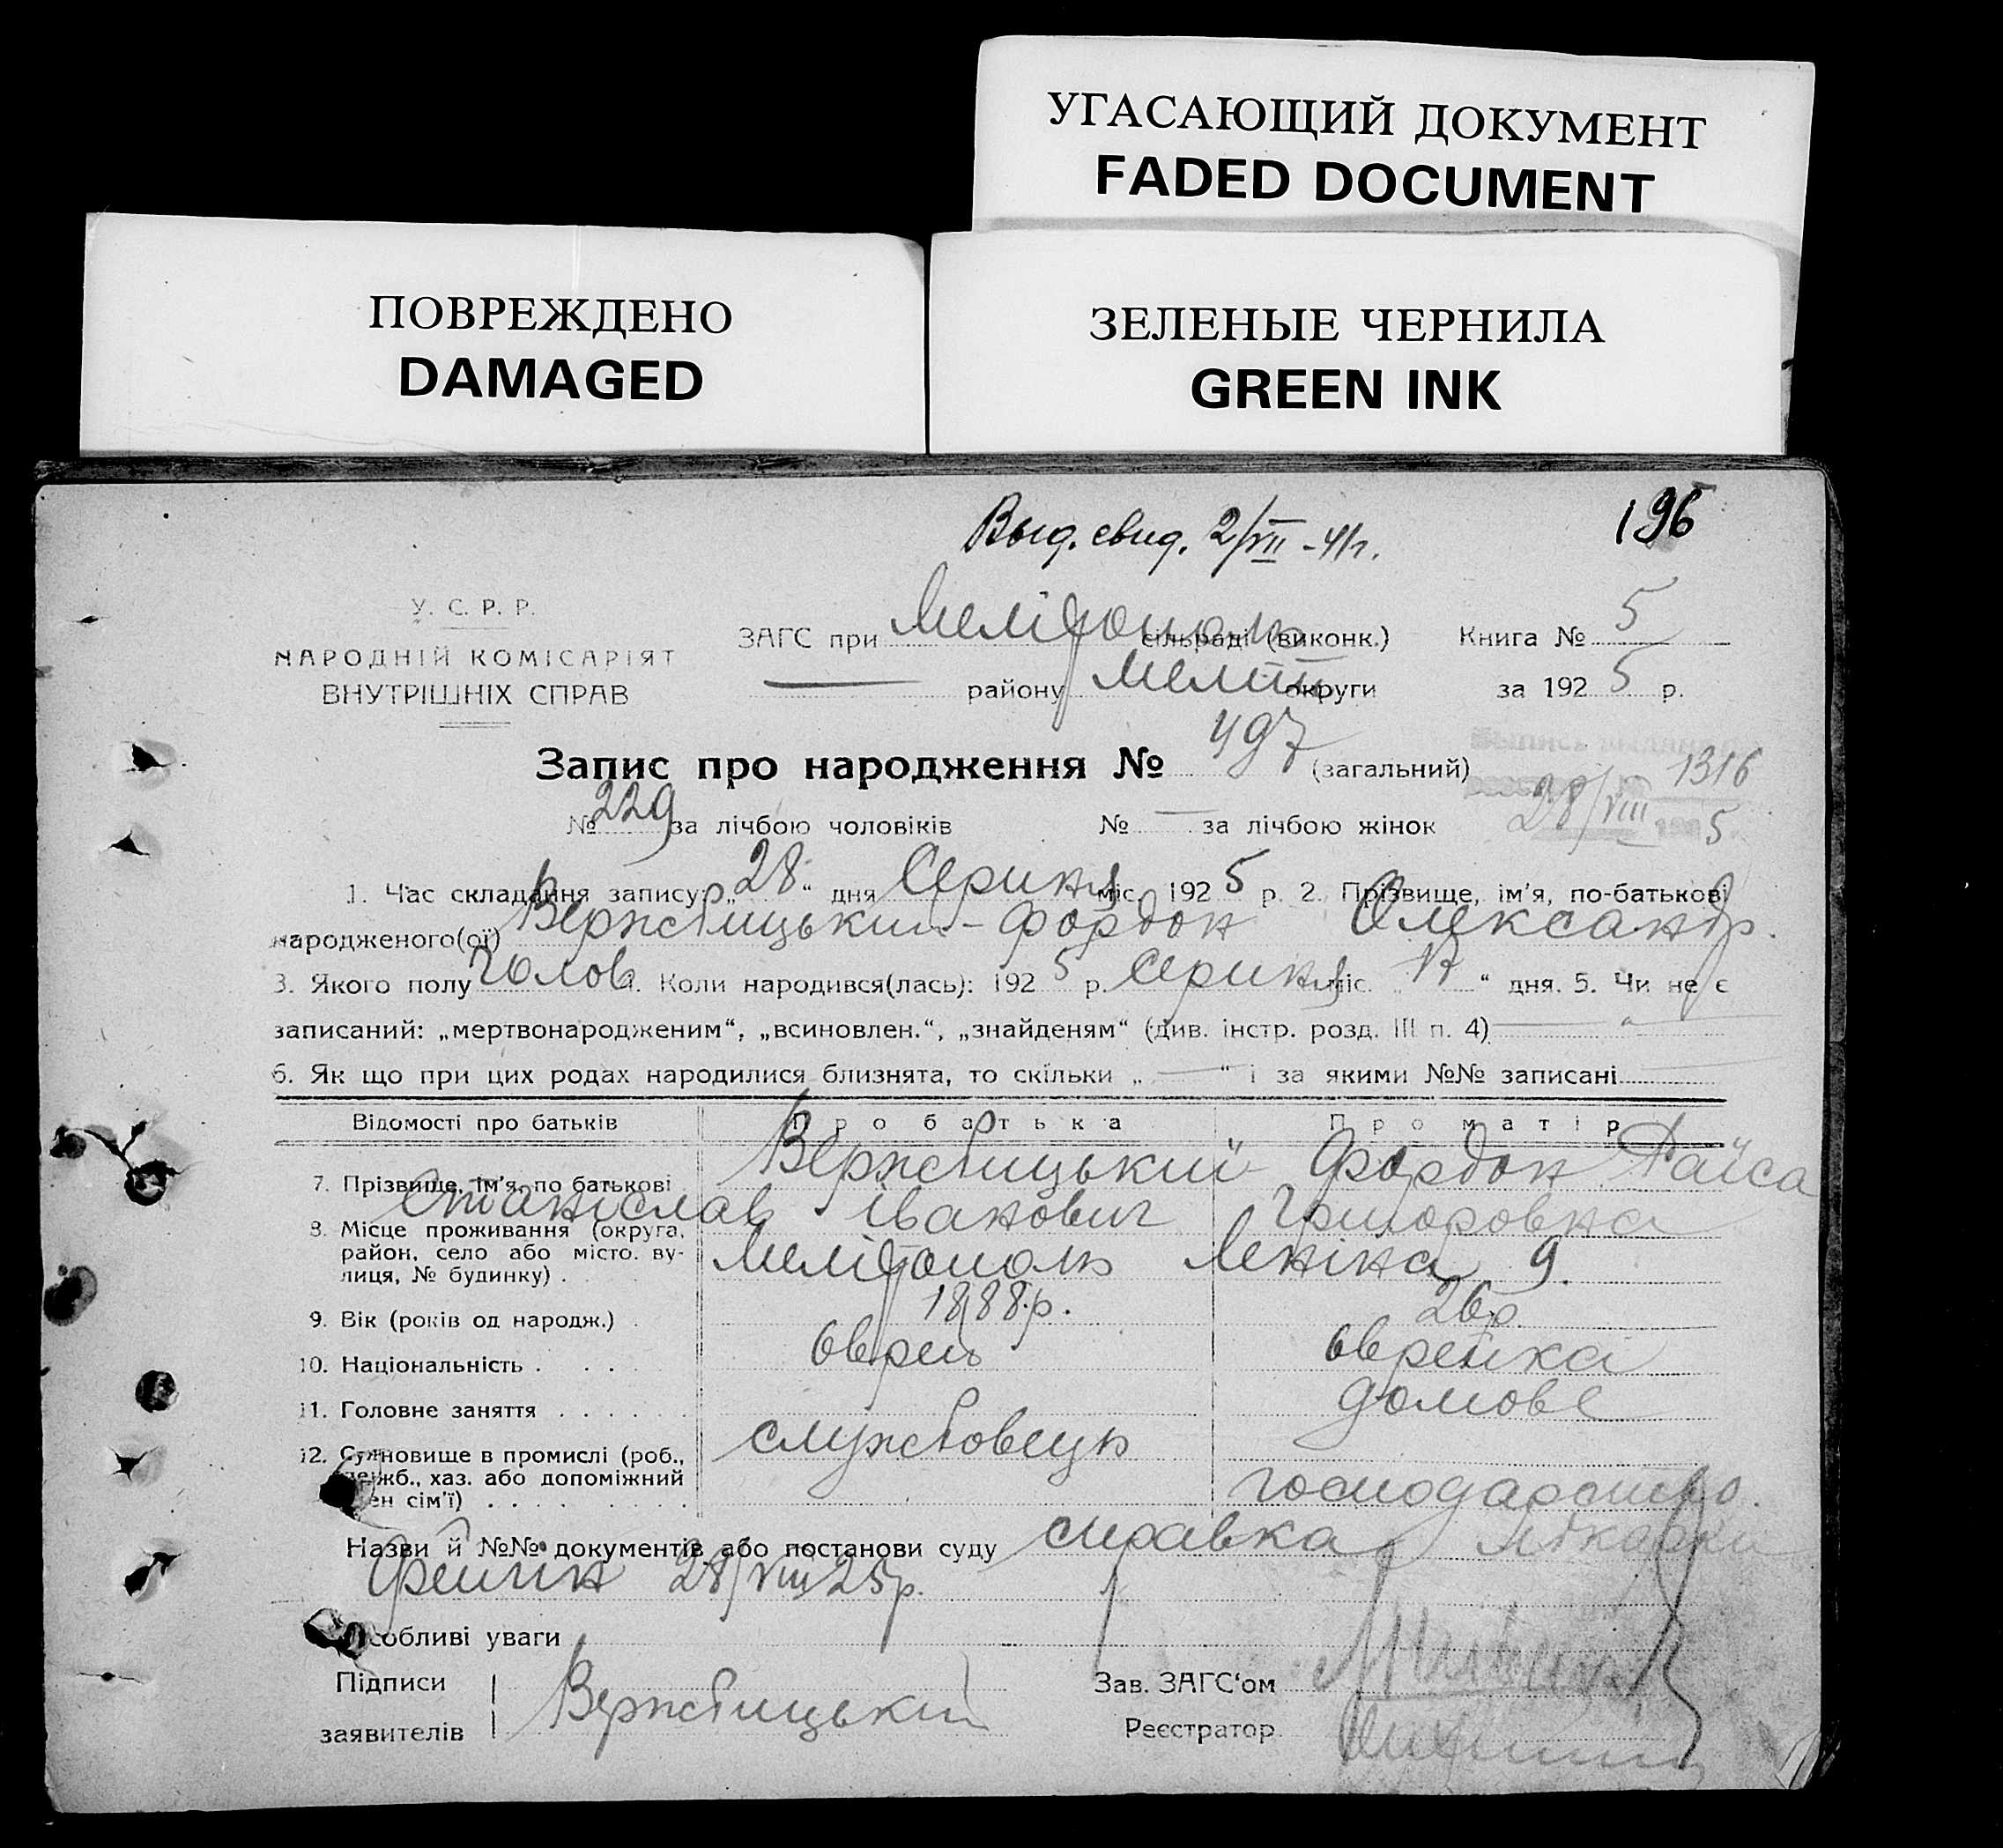 УГАСАЮЩИЙ ДОКУМЕНТ
FADED DOCUMENT
ПОВРЕЖДЕНО
DAMAGED
ЗЕЛЕНЫЕ ЧЕРНИЛА
GREEN INK
Выд. свид. 2/VII - 41г.
196
У. С. Р. Р.
НАРОДНІЙ КОМІСАРІЯТ
ВНУТРІШНІХ СПРАВ
ЗАГС при Мелітополь сільраді (виконк.) Книга № 5
— району Меліт округи за 1925 р.
Запис про народження № 497 (загальний)
1316
28/VIII 1925
№ 229 за лічбою чоловіків № — за лічбою жінок
1. Час складання запису: „28“ дня Серпня міс. 1925 р. 2. Прізвище, ім'я, по-батькові
народженого(ої) Вержбицький-Фордон Олександр.
3. Якого полу Чолов 4. Коли народився(лась): 1925 р. Серпня міс. “ дня. 5. Чи не є
записаний: „мертвонародженим“, „всиновлен.“, „знайденям“ (див. інстр. розд. III п. 4) — “ —
6. Як що при цих родах народилися близнята, то скільки „ — “ і за якими №№ записані —
Відомості про батьків Про батька Про матір
7. Прізвище, ім'я, по батькові Вержбицький Фордон Раїса
Станіслав Іванович Григоровна
8. Місце проживання (округа, район, село або місто, ву-
лиця, № будинку) . Мелітополь Леніна 9.
9. Вік (років од народж.) . 1888 р. 26 р.
10. Національність . . . єврей єврейка
11. Головне заняття . . . . . . домове
12. Становище в промислі (роб., службовець
служб., хаз. або допоміжний
член сім'ї) . . . . . . господарство.
Назви й №№ документів або постанови суду справка лікарки
28/VIII 25 р.
Особливі уваги
Підписи
заявителів Вержбицький
Зав. ЗАГС'ом
Реєстратор